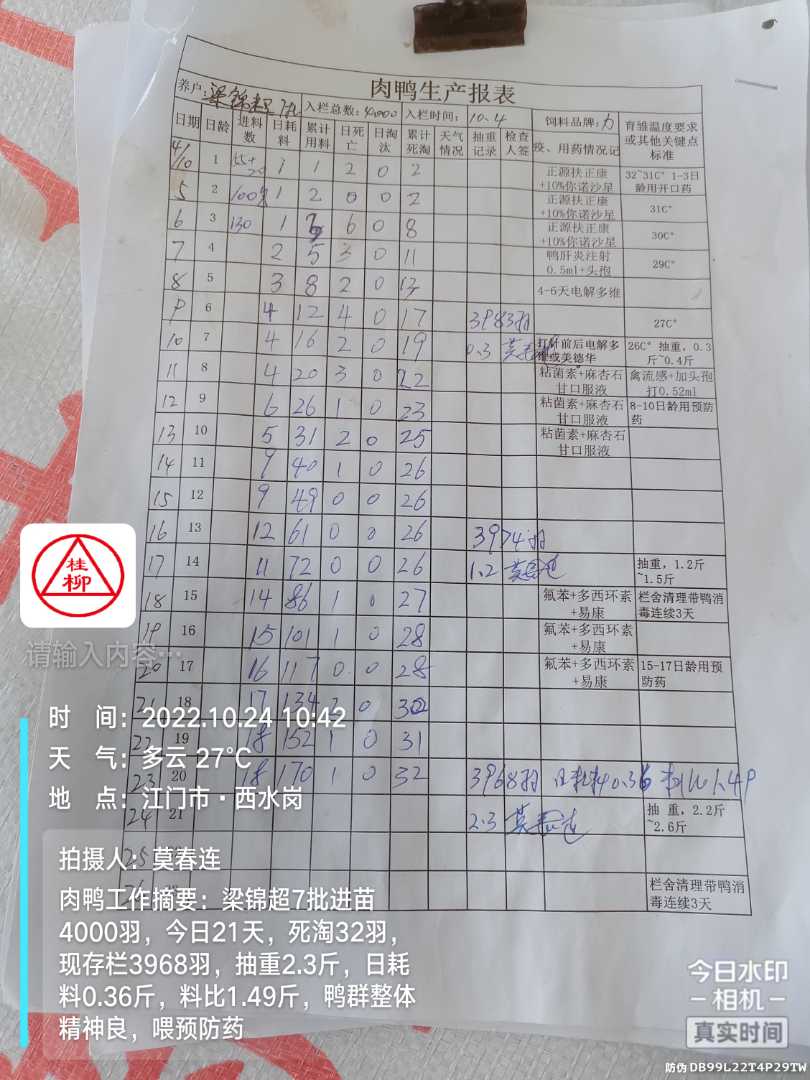 肉鸭生产报表
养户: 梁锦超 7批 入栏总数: 4000 入栏时间: 10.4 饲料品牌: 力 育雏温度要求或其他关键点标准
日期 日龄 进料数 日耗料 累计用料 日死亡 日淘汰 累计死淘 天气情况 抽重记录 检查人签 疫、用药情况记
4/10 1 1 1 2 0 2 正源扶正康+10%你诺沙星 32~31C° 1-3日龄用开口药
5 2 100 1 2 0 0 2 正源扶正康+10%你诺沙星 31C°
6 3 130 1 3 6 0 8 正源扶正康+10%你诺沙星 30C°
7 4 2 5 3 0 11 鸭肝炎注射0.5ml+头孢 29C°
8 5 3 8 2 0 13 4-6天电解多维
9 6 4 12 4 0 17 3983羽 27C°
10 7 4 16 2 0 19 0.3 莫春连 打针前后电解多维或美德华 26C° 抽重，0.3斤~0.4斤
11 8 4 20 3 0 22 粘菌素+麻杏石甘口服液 禽流感+加头孢打0.52ml
12 9 6 26 1 0 23 粘菌素+麻杏石甘口服液 8-10日龄用预防药
13 10 5 31 2 0 25 粘菌素+麻杏石甘口服液
14 11 9 40 1 0 26
15 12 9 49 0 0 26
16 13 12 61 0 0 26 3974羽
17 14 11 72 0 0 26 1.2 莫春连 抽重，1.2斤~1.5斤
18 15 14 86 1 0 27 氟苯+多西环素+易康 栏舍清理带鸭消毒连续3天
19 16 15 101 1 0 28 氟苯+多西环素+易康
20 17 16 117 0 0 28 氟苯+多西环素+易康 15-17日龄用预防药
21 18 17 134 2 0 30
22 19 18 152 1 0 31
23 20 18 170 1 0 32 3968羽 日耗料0.36 料比1.49
24 21 2.3 莫春连 抽重，2.2斤~2.6斤
25
26 栏舍清理带鸭消毒连续3天
桂柳
请输入内容…
时 间：2022.10.24 10:42
天 气：多云 27℃
地 点：江门市·西水岗
拍摄人：莫春连
肉鸭工作摘要：梁锦超7批进苗
4000羽，今日21天，死淘32羽，
现存栏3968羽，抽重2.3斤，日耗
料0.36斤，料比1.49斤，鸭群整体
精神良，喂预防药
今日水印
相机
真实时间
防伪 DB99L22T4P29TW